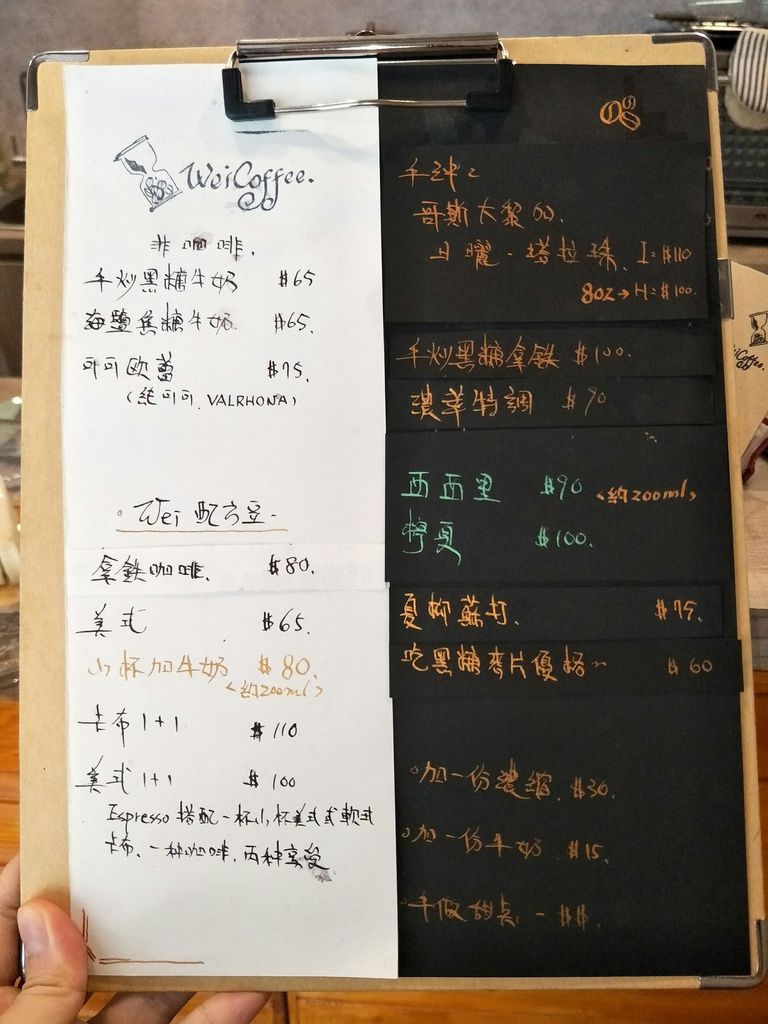 WeiCoffee.
非咖啡.
手炒黑糖牛奶 $65
海鹽焦糖牛奶. $65.
可可歐蕾 $75.
(純可可. VALRHONA)
Wei 配方豆.
拿鐵咖啡. $80.
美式 $65.
小杯加牛奶 $80.
<約200ml>
卡布 1+1 $110
美式 1+1 $100
Espresso 搭配一杯小杯美式或軟式
卡布. 一種咖啡. 兩種享受
手沖:
哥斯大黎加.
日曜-塔拉珠. I=$110
8oz→H=$100.
手炒黑糖拿鐵 $100.
濃萃特調 $90
西西里 $90 <約200ml>
檸夏 $100.
夏柳蘇打. $75.
吃黑糖麥片優格~ $60
加一份濃縮. $30.
加一份牛奶 $15.
手做甜點 - $$.
Coffee.